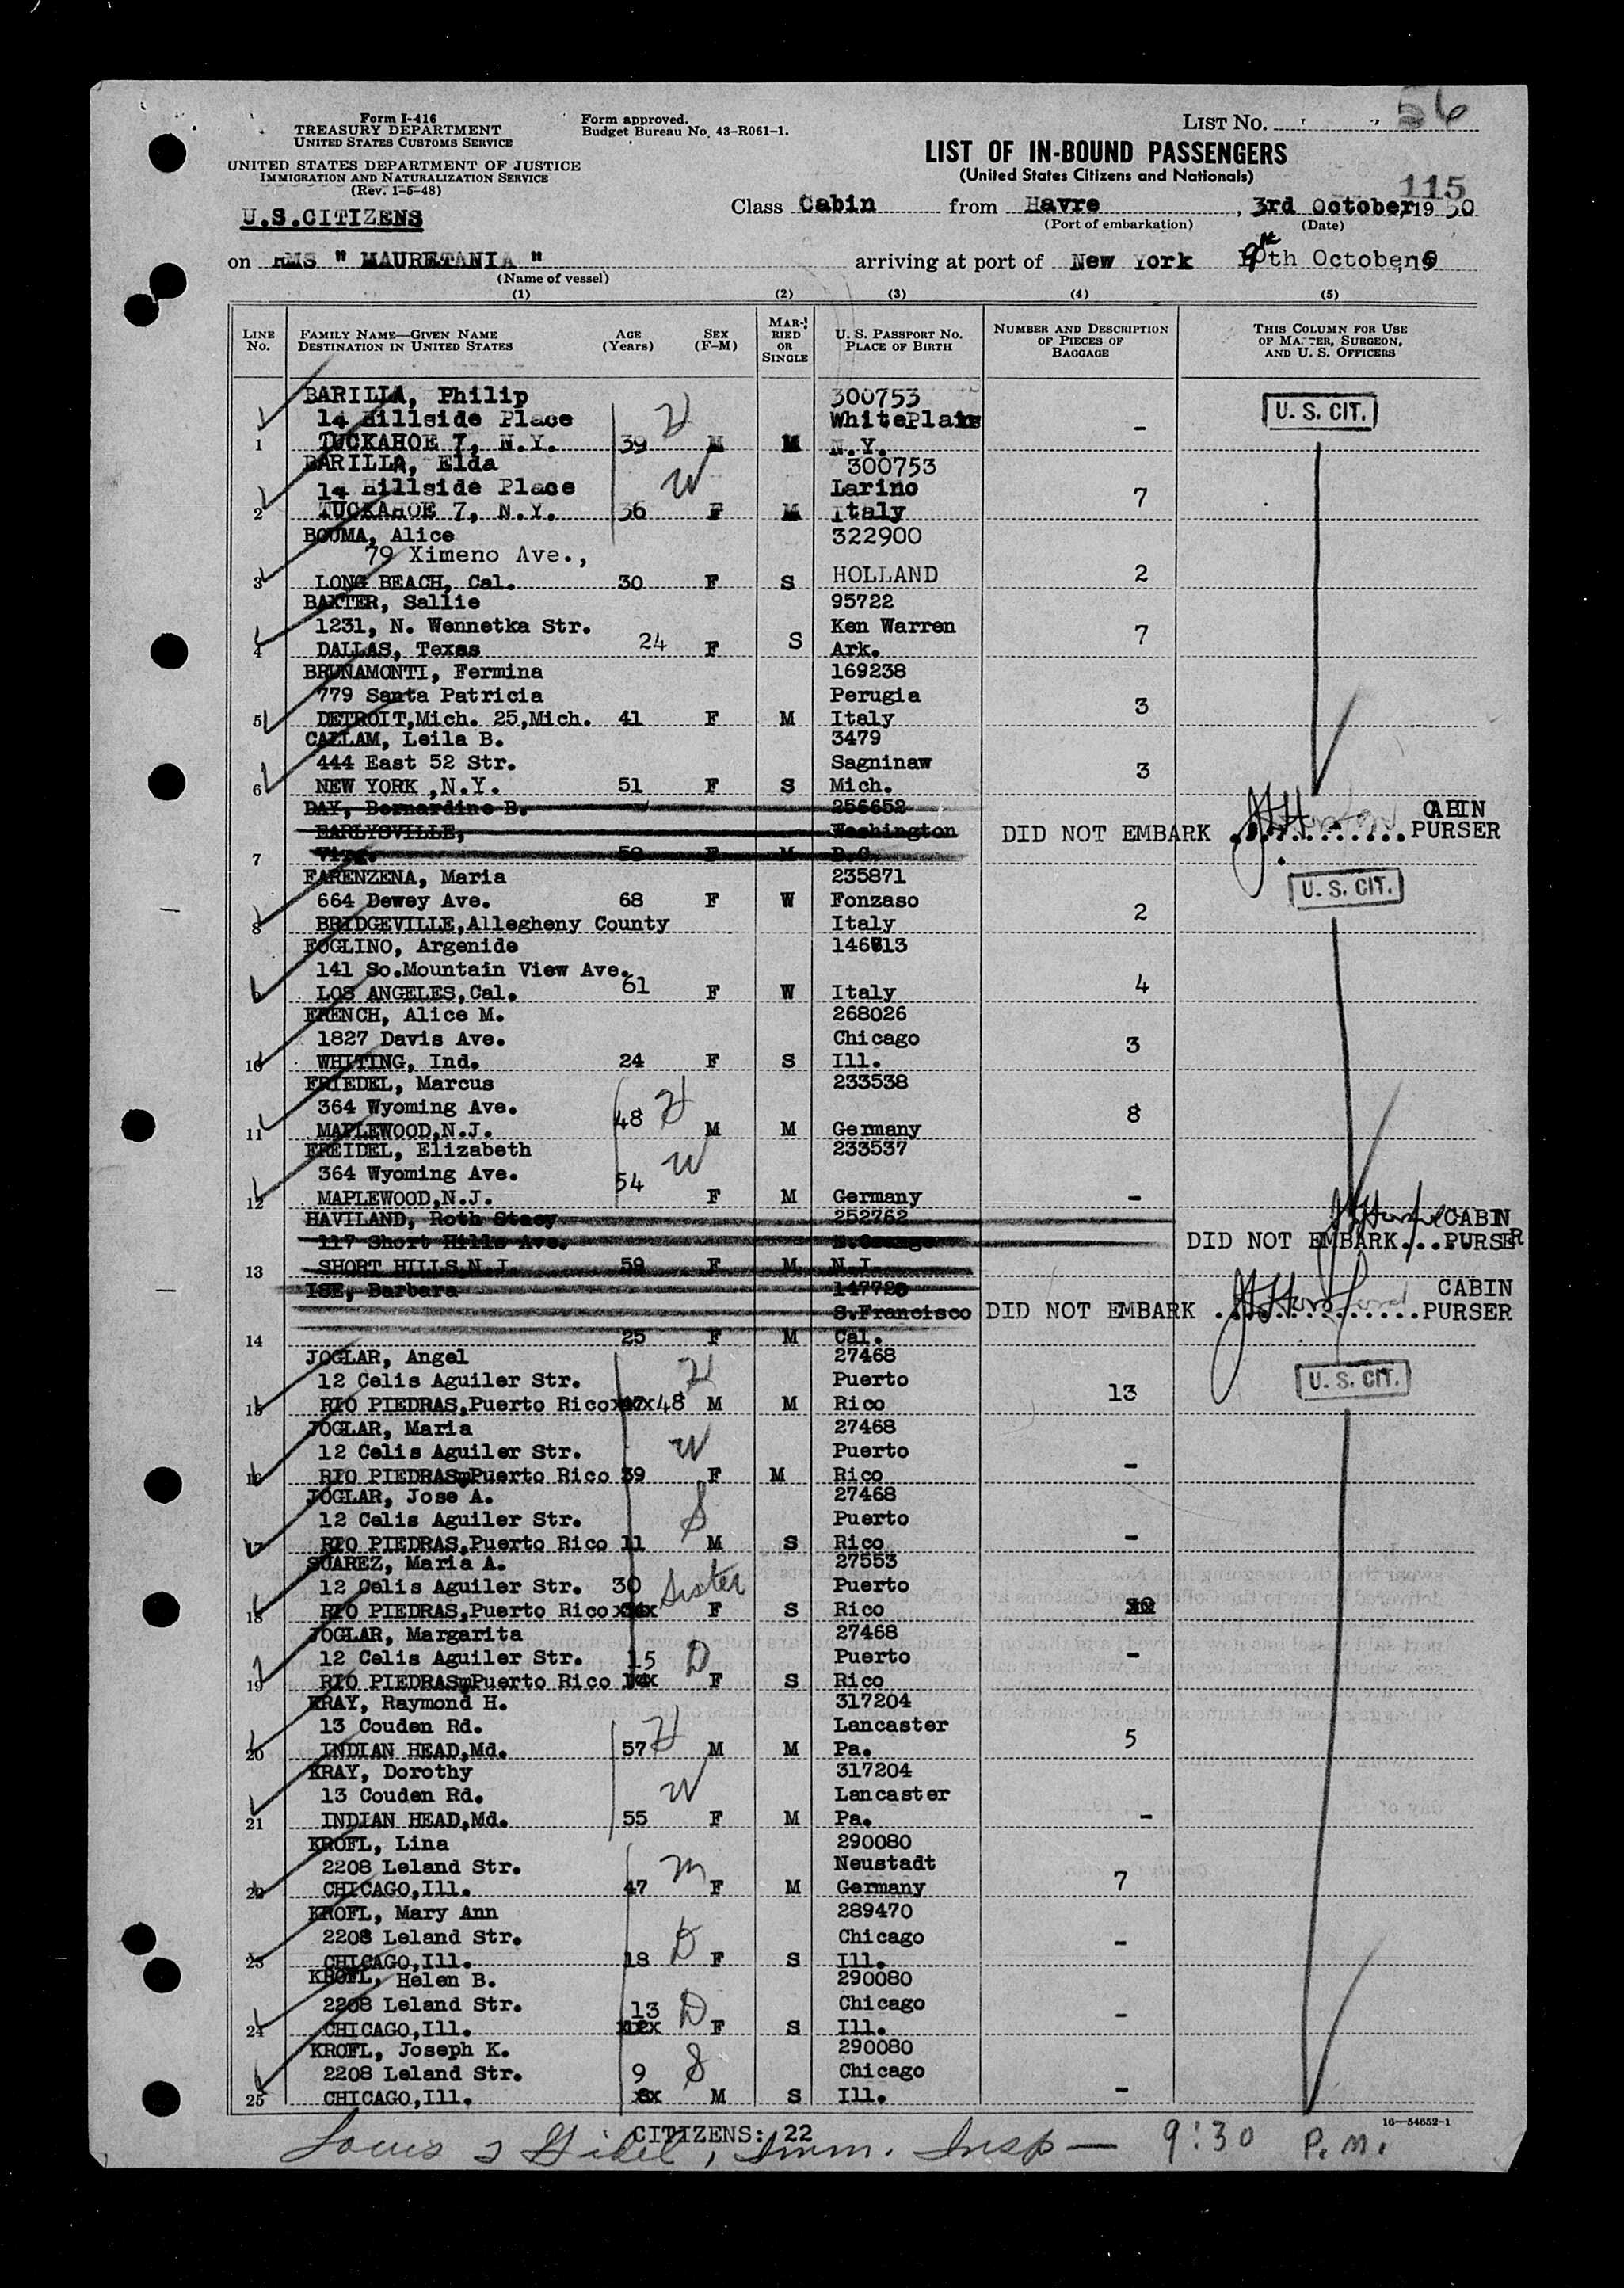 Form I-416
TREASURY DEPARTMENT
UNITED STATES CUSTOMS SERVICE
UNITED STATES DEPARTMENT OF JUSTICE
IMMIGRATION AND NATURALIZATION SERVICE
(Rev. 1-5-48)
U.S.CITIZENS
Form approved.
Budget Bureau No. 43-R061-1.
LIST No. 56
LIST OF IN-BOUND PASSENGERS
(United States Citizens and Nationals)
115
Class Cabin from Havre, 3rd October, 1950
(Port of embarkation) (Date)
on RMS " MAURETANIA " arriving at port of New York th October, 19
(Name of vessel)
(1) (2) (3) (4) (5)
LINE No. FAMILY NAME—GIVEN NAME DESTINATION IN UNITED STATES AGE (Years) SEX (F-M) MARRIED OR SINGLE U. S. PASSPORT NO. PLACE OF BIRTH NUMBER AND DESCRIPTION OF PIECES OF BAGGAGE THIS COLUMN FOR USE OF MASTER, SURGEON, AND U. S. OFFICERS
BARILLA, Philip 300753
14 Hillside Place H WhitePlains - U. S. CIT.
1 TUCKAHOE 7, N.Y. 39 M M N.Y.
BARILLA, Elda 300753
14 Hillside Place W Larino 7
2 TUCKAHOE 7, N.Y. 36 F M Italy
BOUMA, Alice 322900
79 Ximeno Ave.,
3 LONG BEACH, Cal. 30 F S HOLLAND 2
BAXTER, Sallie 95722
1231, N. Wennetka Str. Ken Warren 7
4 DALLAS, Texas 24 F S Ark.
BRUNAMONTI, Fermina 169238
779 Santa Patricia Perugia 3
5 DETROIT,Mich. 25,Mich. 41 F M Italy
CALLAM, Leila B. 3479
444 East 52 Str. Sagninaw 3
6 NEW YORK ,N.Y. 51 F S Mich.
DAY, Bernardine B. 256652 CABIN
EARLYSVILLE, Washington DID NOT EMBARK ............ PURSER
7 Virg. 59 F M D.C.
FARENZENA, Maria 235871 U. S. CIT.
664 Dewey Ave. 68 F W Fonzaso 2
8 BRIDGEVILLE,Allegheny County Italy
FOGLINO, Argenide 146813
141 So.Mountain View Ave. 4
9 LOS ANGELES,Cal. 61 F W Italy
FRENCH, Alice M. 268026
1827 Davis Ave. Chicago 3
10 WHITING, Ind. 24 F S Ill.
FRIEDEL, Marcus 233538
364 Wyoming Ave. H 8
11 MAPLEWOOD,N.J. 48 M M Germany
FREIDEL, Elizabeth 233537
364 Wyoming Ave. W
12 MAPLEWOOD,N.J. 54 F M Germany -
HAVILAND, Roth Stacy 252762 CABIN
117 Short Hills Ave. E.Orange DID NOT EMBARK.....PURSER
13 SHORT HILLS N.J. 59 F M N.J.
ISE, Barbara 147720 CABIN
S.Francisco DID NOT EMBARK .............PURSER
14 25 F M Cal.
JOGLAR, Angel 27468 U. S. CIT.
12 Celis Aguiler Str. H Puerto 13
15 RIO PIEDRAS,Puerto Rico x47x48 M M Rico
JOGLAR, Maria 27468
12 Celis Aguiler Str. W Puerto -
16 RIO PIEDRAS,Puerto Rico 39 F M Rico
JOGLAR, Jose A. 27468
12 Celis Aguiler Str. S Puerto -
17 RIO PIEDRAS,Puerto Rico 11 M S Rico
SUAREZ, Maria A. 27553
12 Celis Aguiler Str. 30 Sister Puerto
18 RIO PIEDRAS,Puerto Rico F S Rico
JOGLAR, Margarita 27468
12 Celis Aguiler Str. 15 D Puerto -
19 RIO PIEDRAS,Puerto Rico 14x F S Rico
KRAY, Raymond H. 317204
13 Couden Rd. H Lancaster 5
20 INDIAN HEAD,Md. 57 M M Pa.
KRAY, Dorothy 317204
13 Couden Rd. W Lancaster
21 INDIAN HEAD,Md. 55 F M Pa. -
KROFL, Lina 290080
2208 Leland Str. M Neustadt 7
22 CHICAGO,Ill. 47 F M Germany
KROFL, Mary Ann 289470
2208 Leland Str. D Chicago -
23 CHICAGO,Ill. 18 F S Ill.
KROFL, Helen B. 290080
2208 Leland Str. 13 D Chicago -
24 CHICAGO,Ill. x12x F S Ill.
KROFL, Joseph K. 290080
2208 Leland Str. 9 S Chicago
25 CHICAGO,Ill. x8x M S Ill. -
16—54652-1
CITIZENS: 22
Louis Imm. Insp — 9:30 P.M.